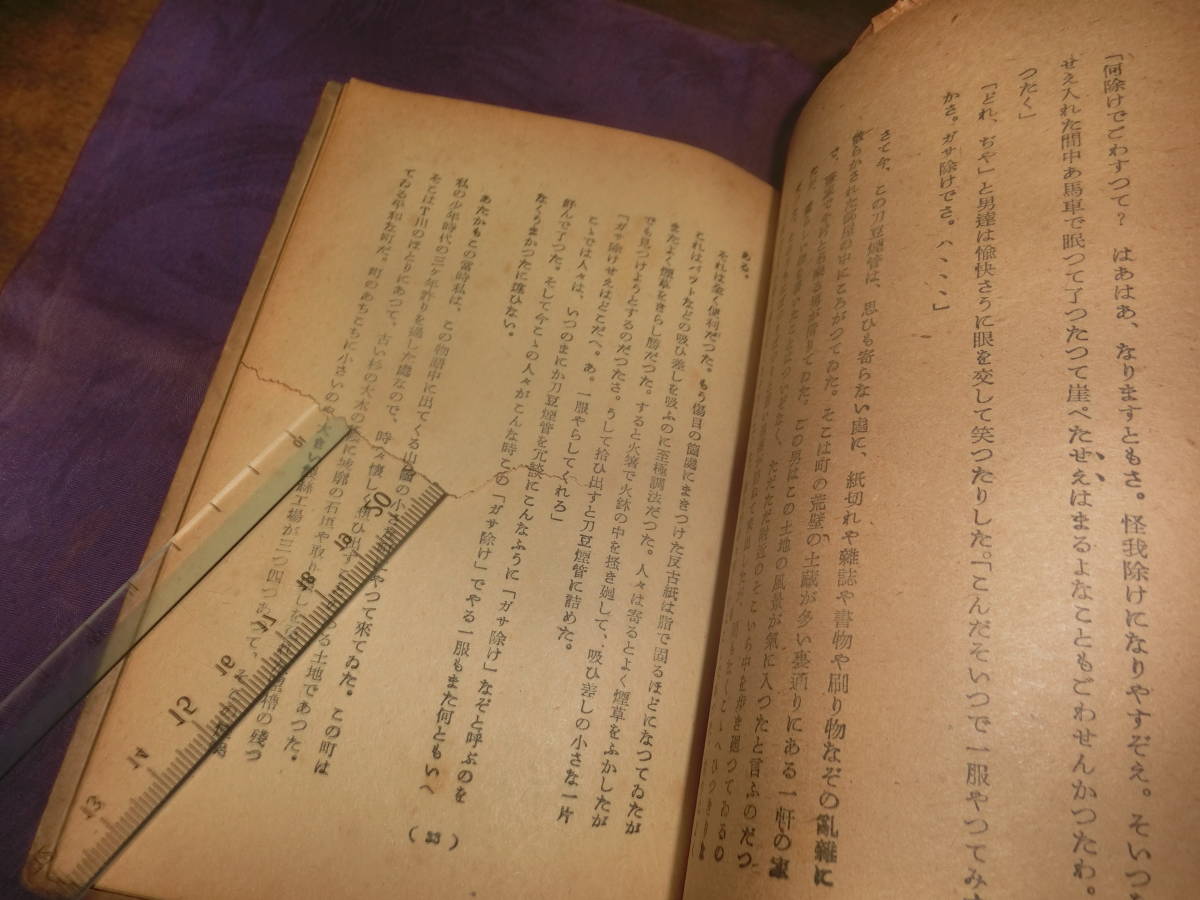 「何除けでごわすつて？　はあはあ、なりますともさ。怪我除けになりやすぞえ。そいつ
せえ入れた間中あ馬車で眠つて了つたつて崖ぺたせえはまるよなこともごわせんかつたわ。
つたく」
「どれ、ぢや」と男達は愉快さうに眼を交して笑つたりした。「こんだそいつで一服やつてみ
かさ。ガサ除けでさ。ハ、、、」
さて今、この刀豆煙管は、思ひも寄らない處に、紙切れや雜誌や書物や刷り物なぞの亂雜に
散らかされた部屋の中にころがつてゐた。そこは町の荒壁の土蔵が多い裏通りにある一軒の家
この男はこの土地の風景が氣に入つたと言ふのだつ
ただただ附近のそこいら中を歩き廻つてゐるの
ある。
それは全く便利だつた。もう傷目の箇處にまきつけた反古紙は脂で固るほどになつてゐたが
これはバツトなどの吸ひ差しを吸ふのに至極調法だつた。人々は寄るとよく煙草をふかしたが
またよく煙草をきらし勝だつた。すると火箸で火鉢の中を掻き廻して、吸ひ差しの小さな一片
でも見つけようとするのだつたさ。うして拾ひ出すと刀豆煙管に詰めた。
「ガサ除けせえはどこだへ。あ。一服やらしてくれろ」
こゝでは人々は、いつのまにか刀豆煙管を冗談にこんなふうに「ガサ除け」なぞと呼ぶのを
好んで了つた。そして今こゝの人々がこんな時この「ガサ除け」でやる一服もまた何ともいへ
なくうまかつたに違ひない。
あたかもこの當時私は、この物語中に出てくる山國の小さ やつて來てゐた。この町は
私の少年時代の三ヶ年許りを過した處なので、時々懐しく想ひ出す
そこはT川のほとりにあつて、古い杉の大木の 城廓の石垣や取り る土地であつた。
てゐる平和な町だ。町のあちこちに小さいのや大きい 工場が三つ四つあつて、 櫓の殘つ
(23)
10
11
12
13
14
15
16
17
18
19
20